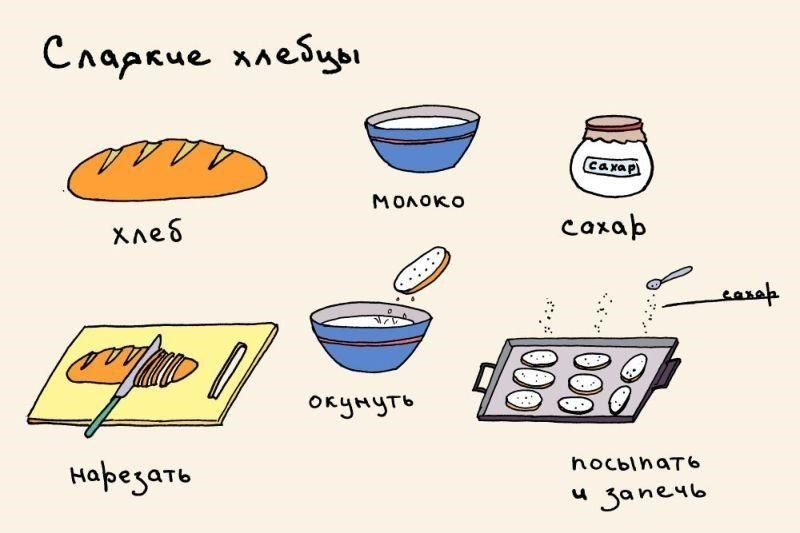 Сладкие хлебцы
хлеб
молоко
сахар
сахар
нарезать
окунуть
сахар
посыпать
и запечь